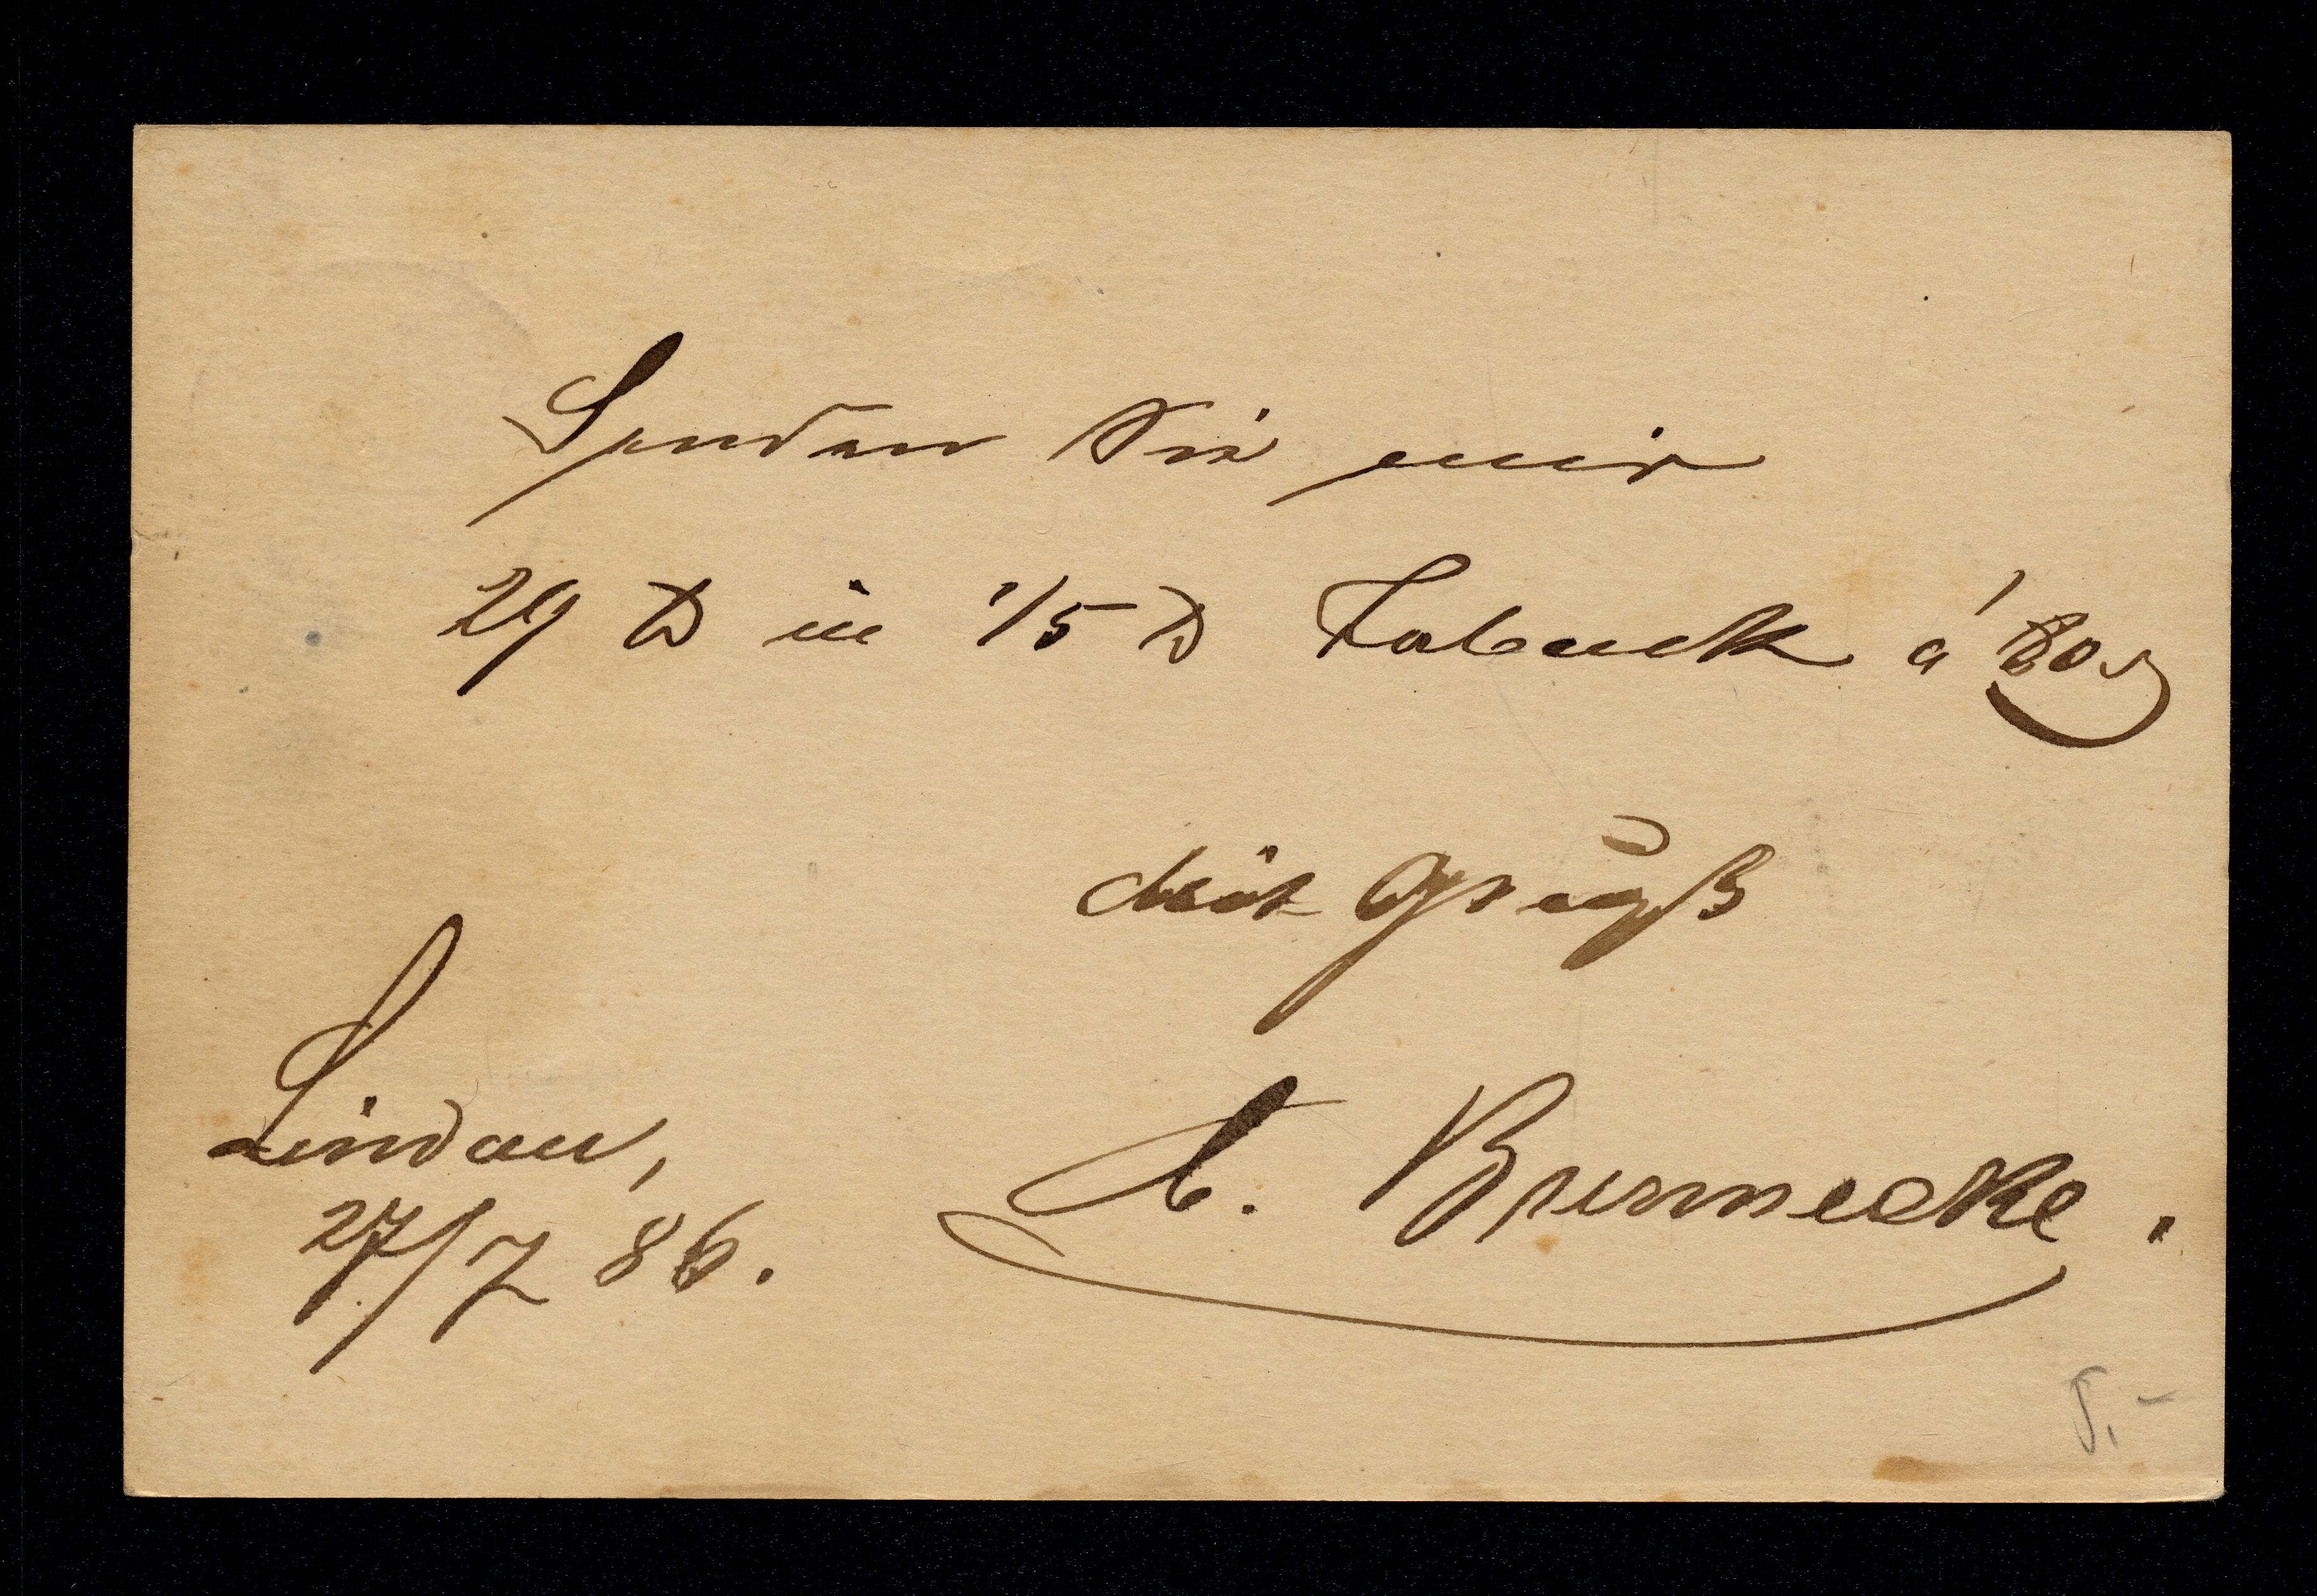 Senden Sie mir
29 ℔ in 1/5 ℔ Taback á 80 ₰
Mit Gruß
Lindau,
27/7 86.
Brennecke.